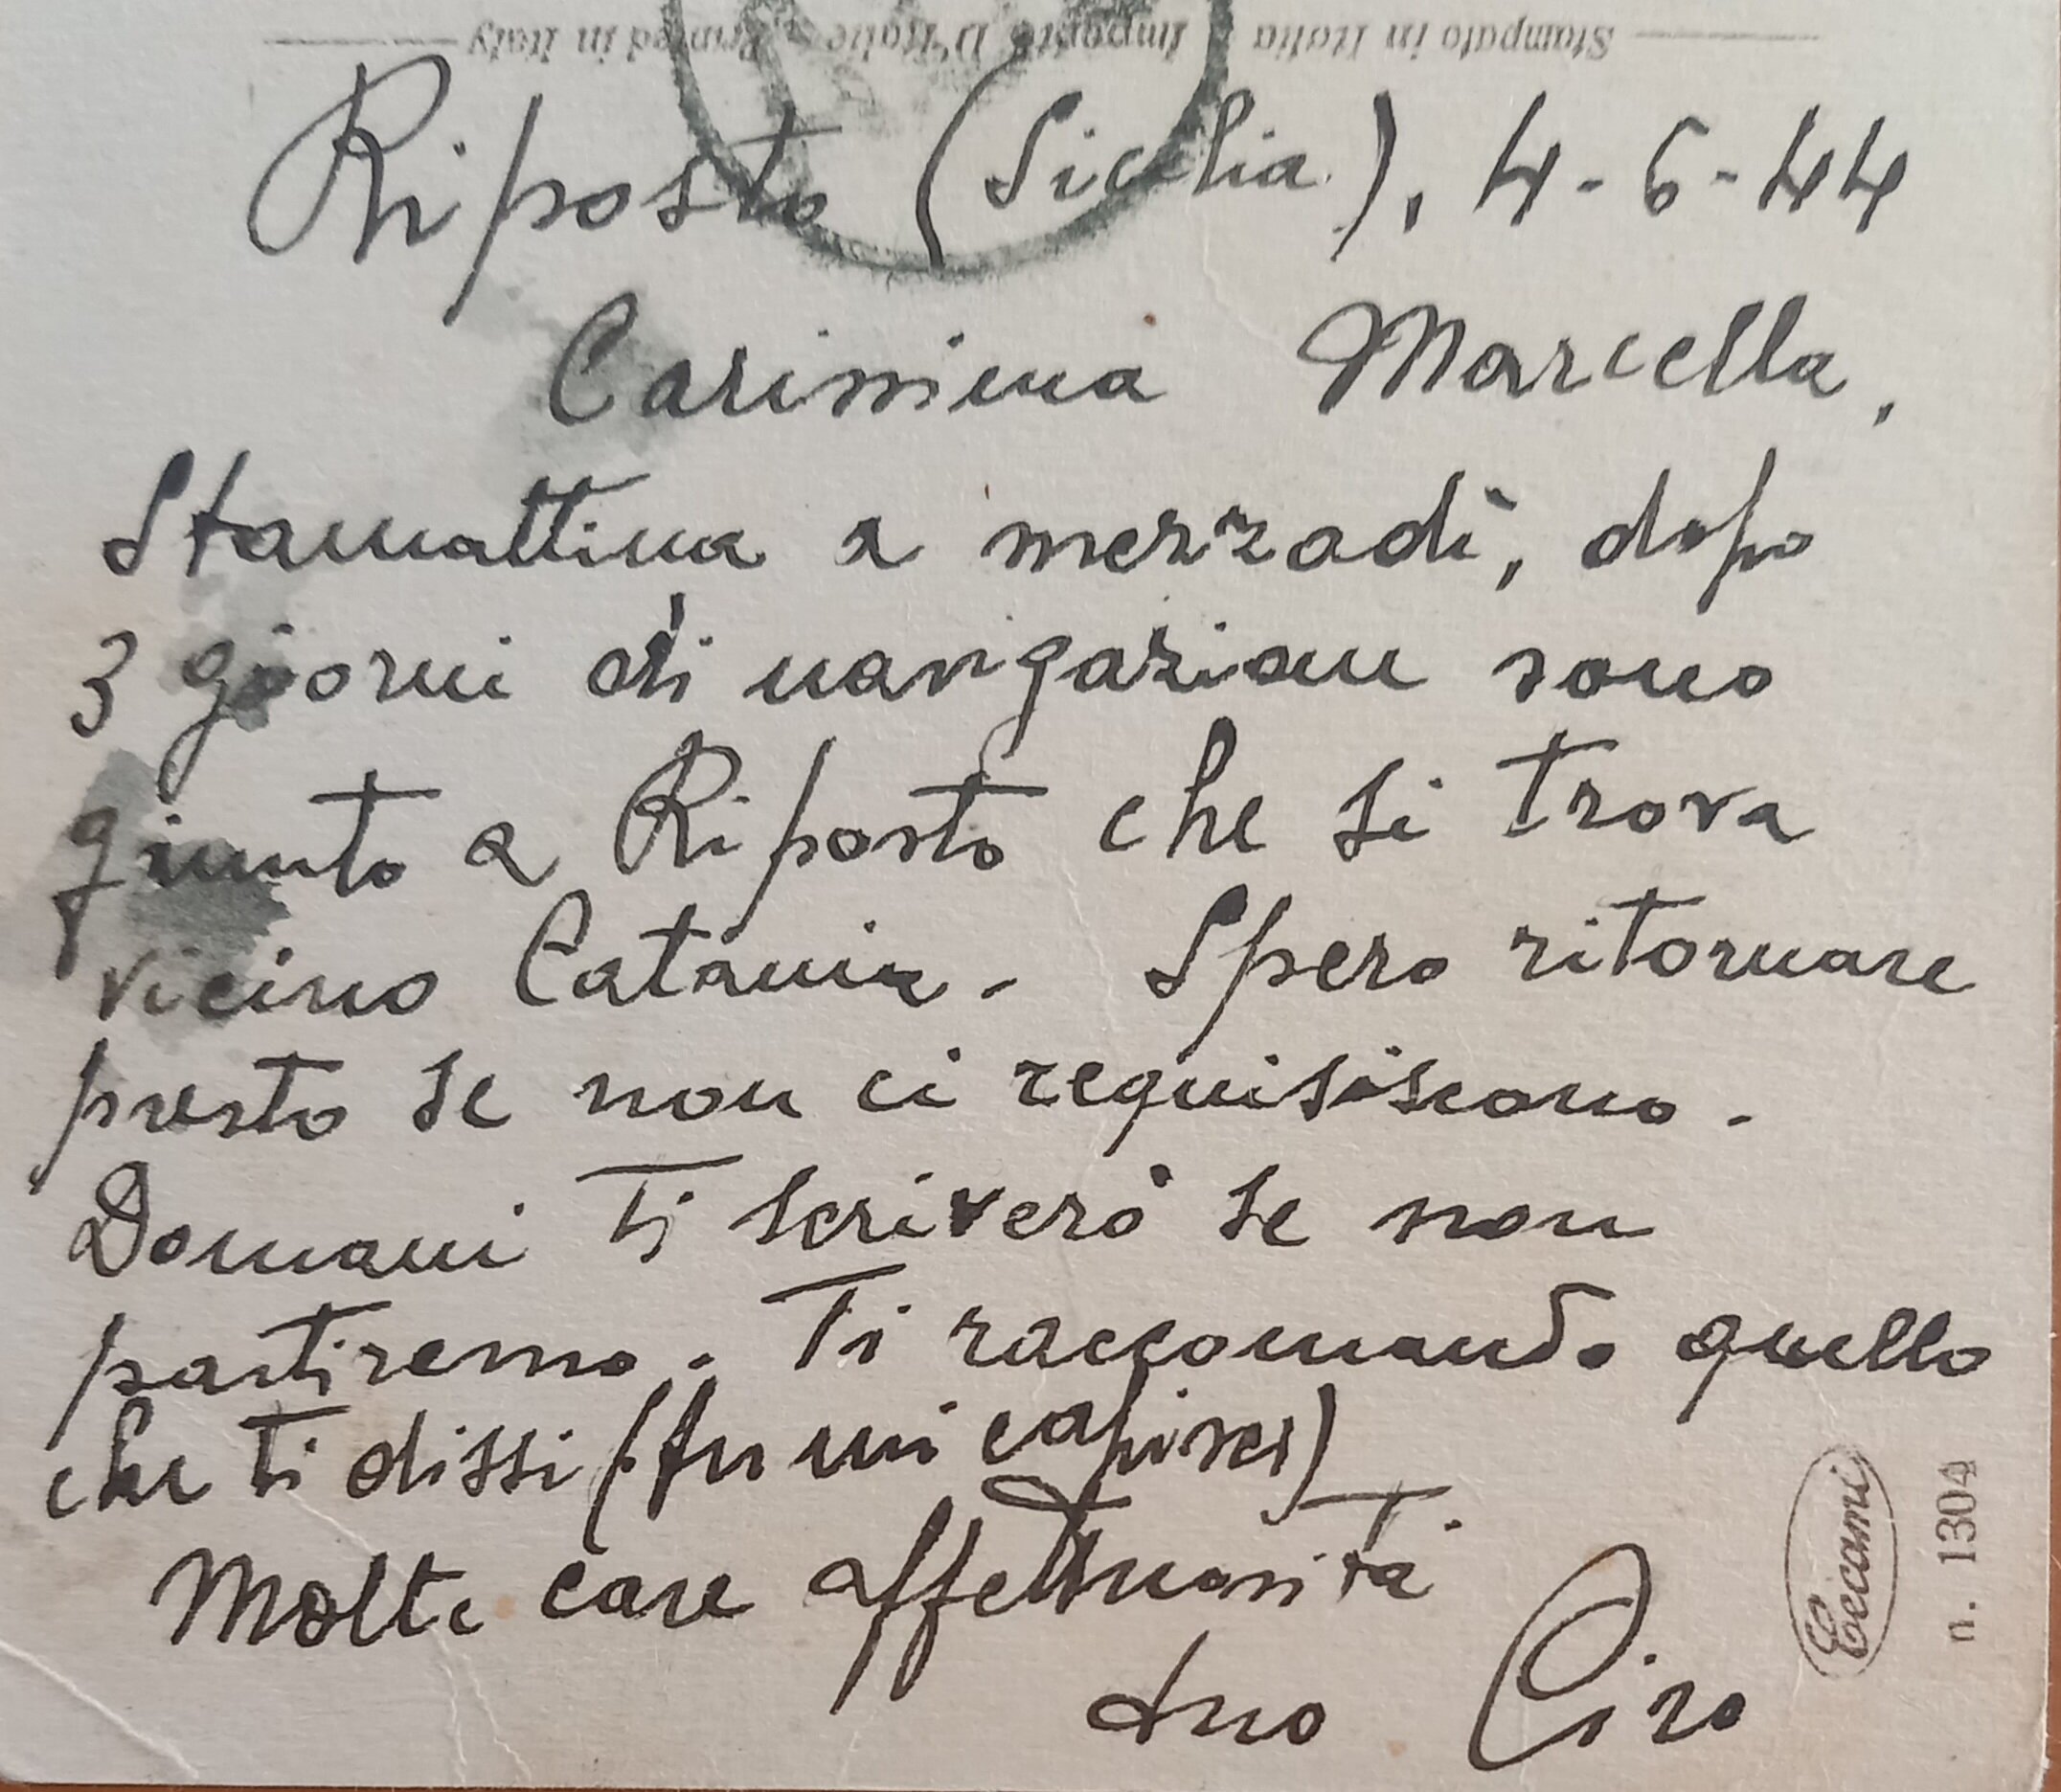 Stampato in Italia Importé D'Italie Printed in Italy
Riposto (Sicilia), 4-6-44
Carissima Marcella,
Stamattina a mezzadì, dopo
3 giorni di navigazione sono
giunto a Riposto che si trova
vicino Catania. Spero ritornare
presto se non ci requisiscono.
Domani Ti scriverò se non
partiremo. Ti raccomando quello
che ti dissi (tu mi capisci)
Molte care affettuosità
tuo Ciro
Ceccami
n. 1304